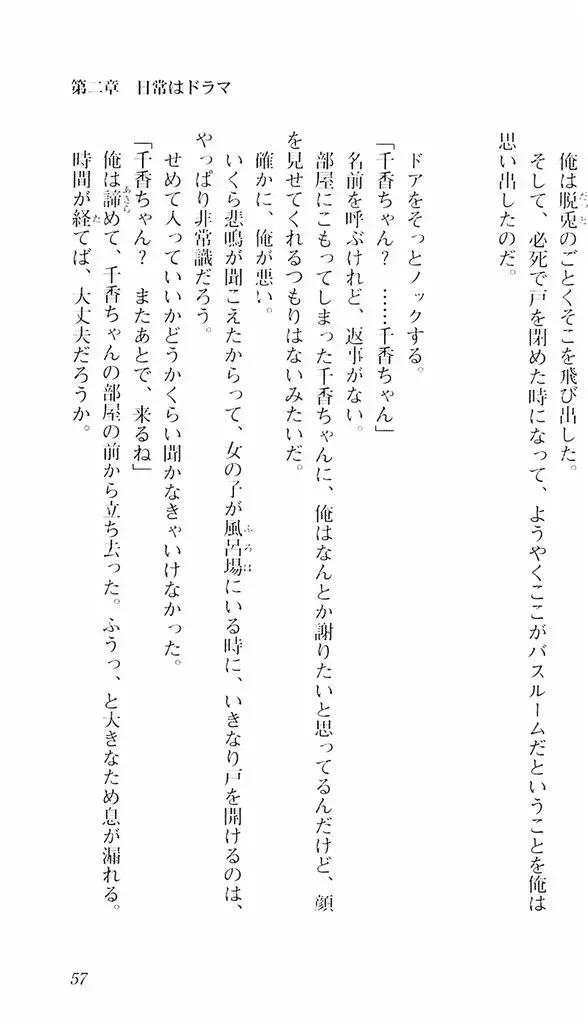 第二章　日常はドラマ
俺は脱兎のごとくそこを飛び出した。
そして、必死で戸を閉めた時になって、ようやくここがバスルームだということを俺は
思い出したのだ。
ドアをそっとノックする。
「千香ちゃん？　……千香ちゃん」
名前を呼ぶけれど、返事がない。
部屋にこもってしまった千香ちゃんに、俺はなんとか謝りたいと思ってるんだけど、顔
を見せてくれるつもりはないみたいだ。
確かに、俺が悪い。
いくら悲鳴が聞こえたからって、女の子が風呂場にいる時に、いきなり戸を開けるのは、
やっぱり非常識だろう。
せめて入っていいかどうかくらい聞かなきゃいけなかった。
「千香ちゃん？　またあとで、来るね」
俺は諦めて、千香ちゃんの部屋の前から立ち去った。ふうっ、と大きなため息が漏れる。
時間が経てば、大丈夫だろうか。
57